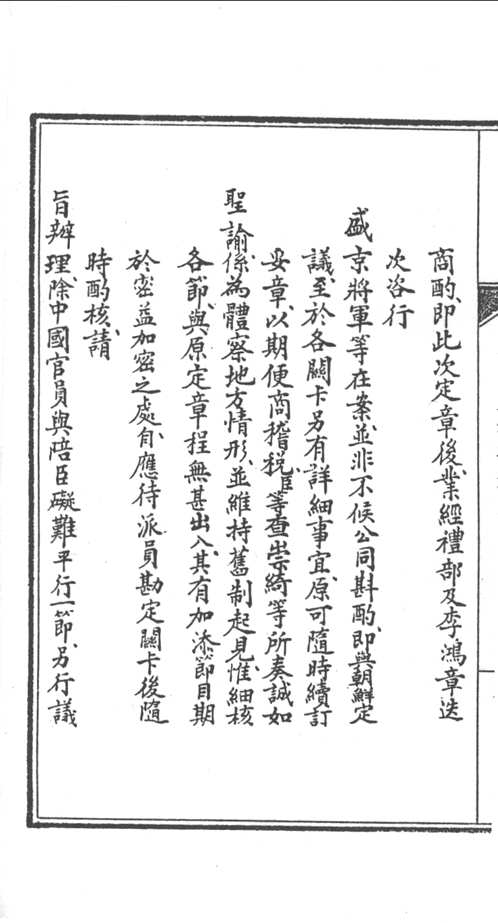 商酌、即此次定章後、業經禮部及李鴻章迭
次咨行
盛京將軍等在案、並非不候公同斟酌、即與朝鮮定
議、至於各關卡另有詳細事宜、原可隨時續訂
妥章、以期便商稽稅、臣等查崇綺等所奏、誠如
聖諭、係為體察地方情形、並維持舊制起見、惟細核
各節、與原定章程無甚出入、其有加添節目、期
於密益加密之處、自應待派員勘定關卡後、隨
時酌核、請
旨辦理、除中國官員與陪臣礙難平行一節、另行議